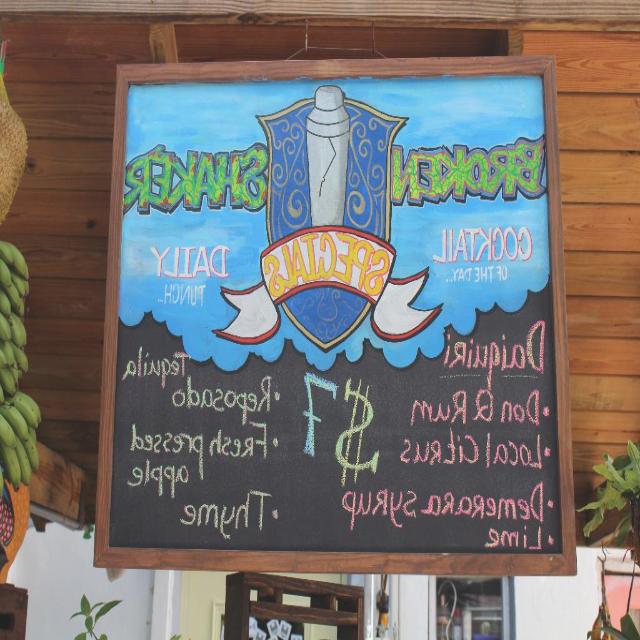 BROKEN SHAKER
SPECIALS
COCKTAIL
OF THE DAY...
Daiquiri
· Don Q Rum
· Local Citrus
· Demerara Syrup
· Lime
$7
DAILY
PUNCH...
· Tequila
Reposado
· Fresh pressed
apple
· Thyme